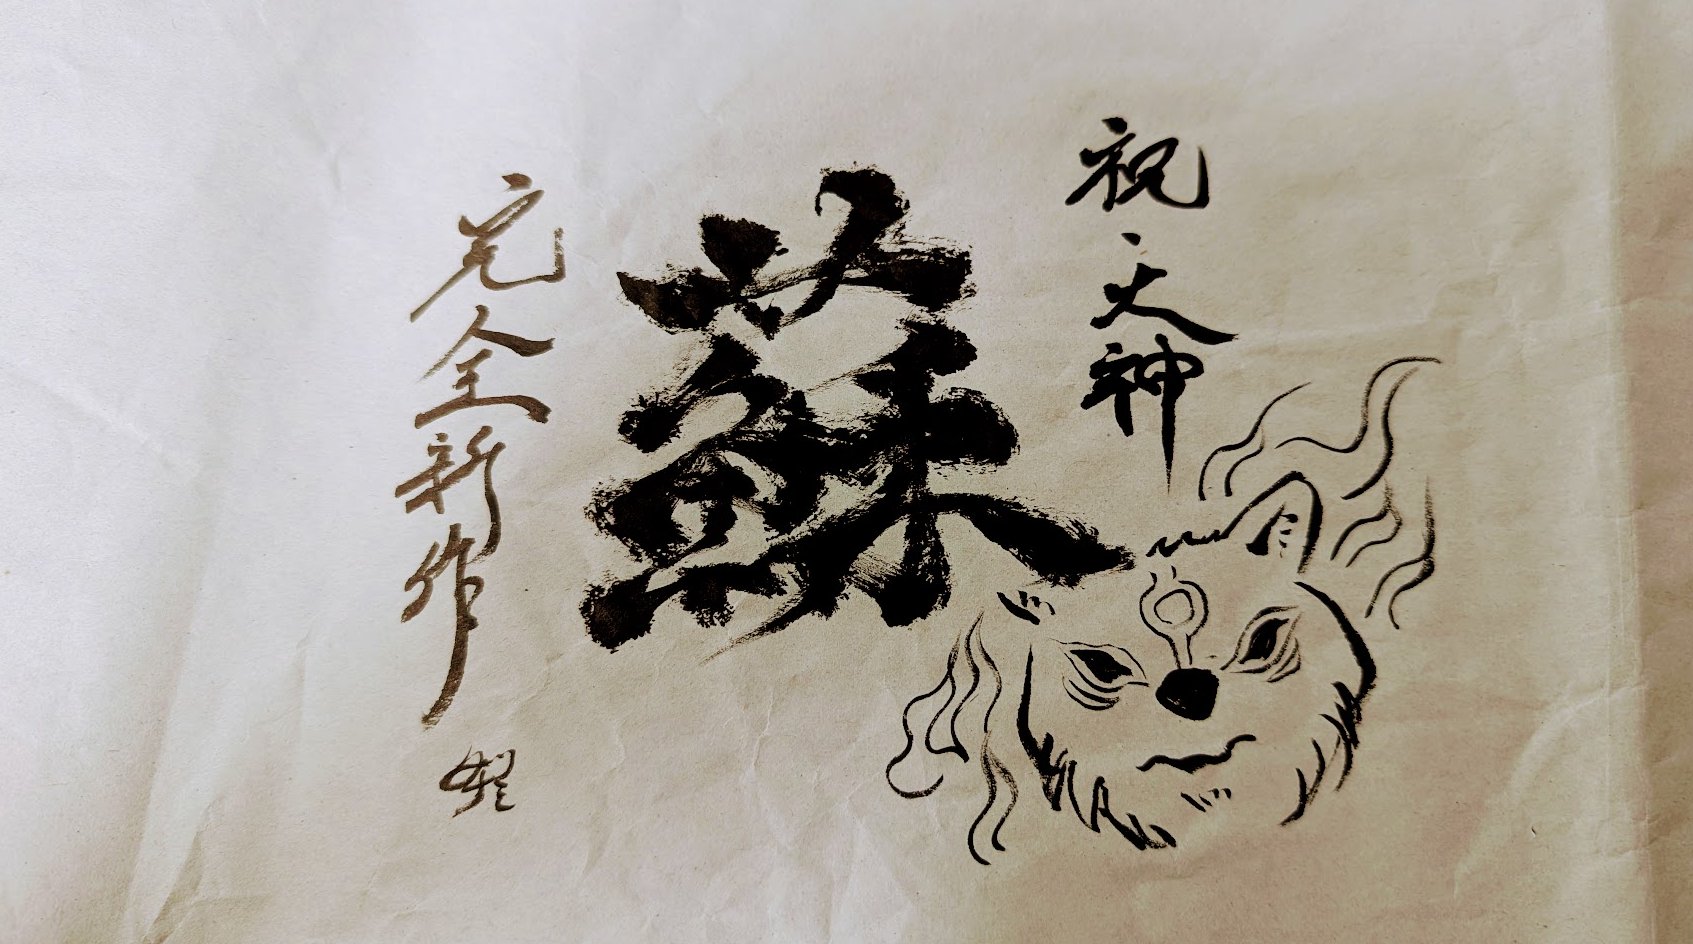 祝大神
蘇
完全新作